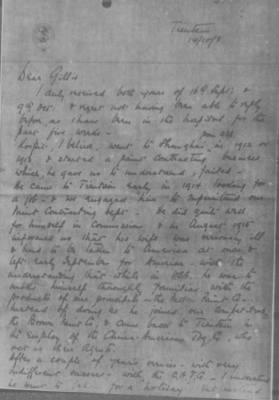 Tientsin
14/10/18
Dear Gillis
I duly received both yours of 16th Sept: &
9th Oct. & regret not having been able to reply
before as I have been in the hospital for the
past five weeks.
I believe, went to Shanghai in 1912 or
1913 & started a paint contracting business
which, he gave us to understand, failed.
He came to Tientsin early in 1914 looking for
a job & we engaged him to superintend our
Paint Contracting Dept. He did quite well
for himself in Commission & in August 1915
informed us that his wife was seriously ill
& had to return to America at once. He
left early September for America with the
understanding that while in U.S.A. he was to
make himself thoroughly familiar with the
products of our principals
Instead of doing so he joined our competitors,
& came back to Tientsin in
the employ of the China American Co. who
act as their Agents.
After a couple of years with very
indifferent success with the
he went to for a holiday